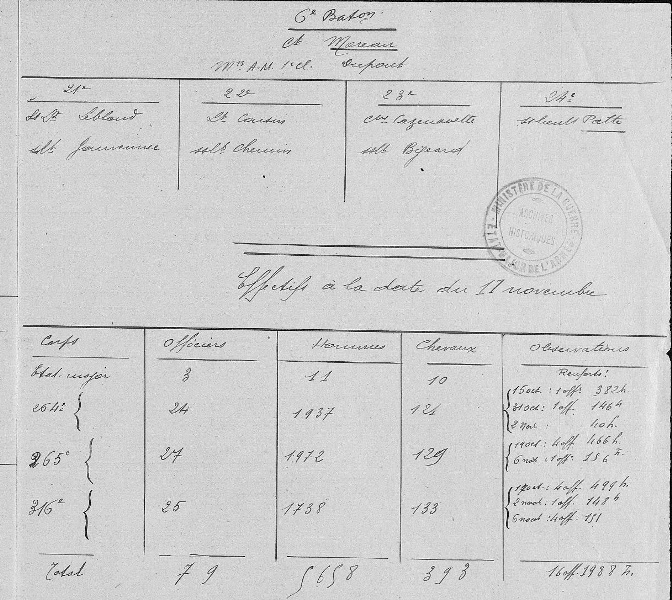 6e Baton
Ct Moreau
Mn A.M. 1e Cl. Dupont
21e 22e 23e 24e
ss Lt Leblond Lt Cousin Cne Cazenavette ss lieut Patte
sslt sslt Chemin sslt Bigeard
MINISTÈRE DE LA GUERRE
ARCHIVES
HISTORIQUES
ETAT-MAJOR DE L'ARMÉE
Effectifs à la date du 17 novembre
Corps Officiers Hommes Chevaux Observations
Etat major 3 11 10 Renforts:
264e 24 1937 121 15 oct: 1 off. 382 h
31 oct: 1 off. 146 h
2 nov. 40 h.
265e 27 1972 129 19 oct: 4 off. 466 h.
6 nov: 1 off: 156 h.
316e 25 1738 133 19 oct: 4 off. 499 h.
2 nov: 1 off. 148 h
6 nov: 4 off. 151
Total 79 5658 393 16 off. 1988 h.